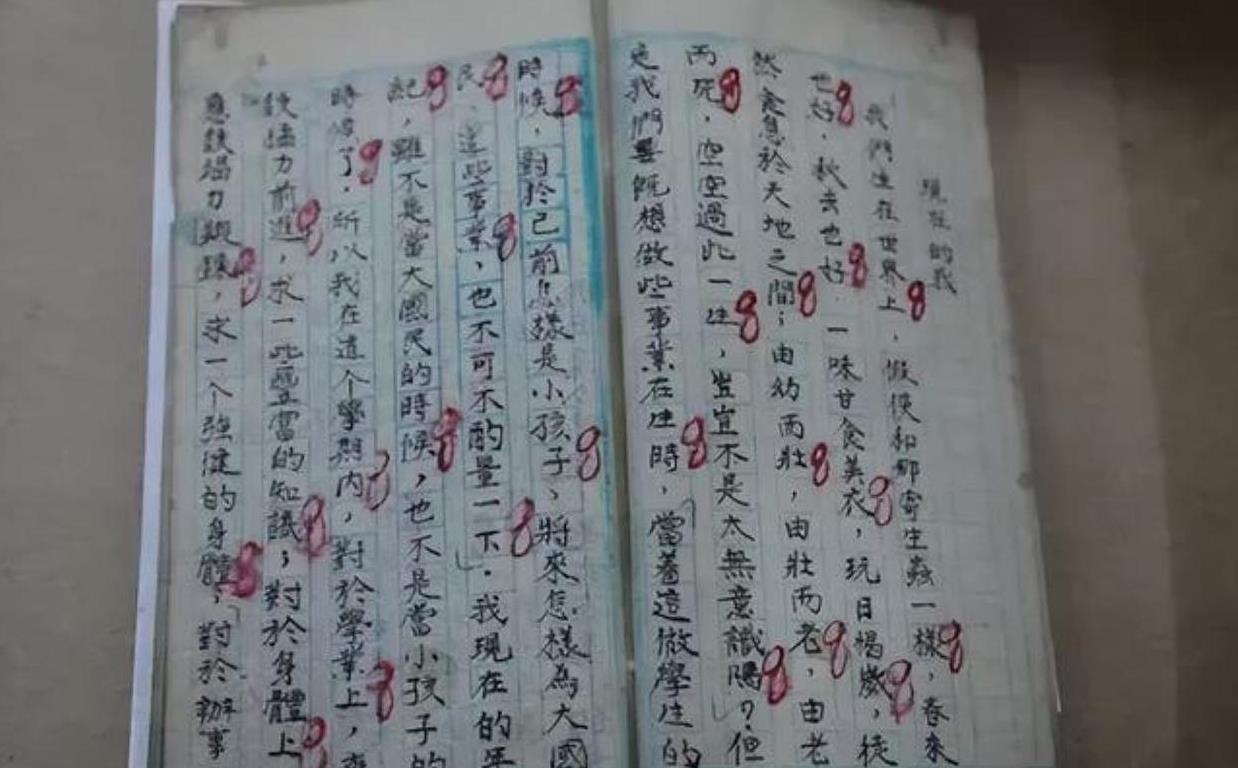 現在的我
我們生在世界上，假使和那寄生蟲一樣，春來
也好，秋去也好．一味甘食美衣，玩日愒歲，徒
然食息於天地之間；由幼而壯，由壯而老，由老
而死，空空過此一生，豈宜不是太無意識嗎？但
是我們要既想做些事業在生時，當着這做學生的
時候，對於已前怎樣是小孩子、將來怎樣為大國
民，這些事業，也不可不酌量一下．我現在的年
紀，雖不是當大國民的時候，也不是當小孩子的
時候了．所以我在這个學期內，對於學業上，應
鼓猛力前進，求一些豐富的知識；對於身體上
應鼓竭力鍛鍊，求一个強健的身體；對於辦事